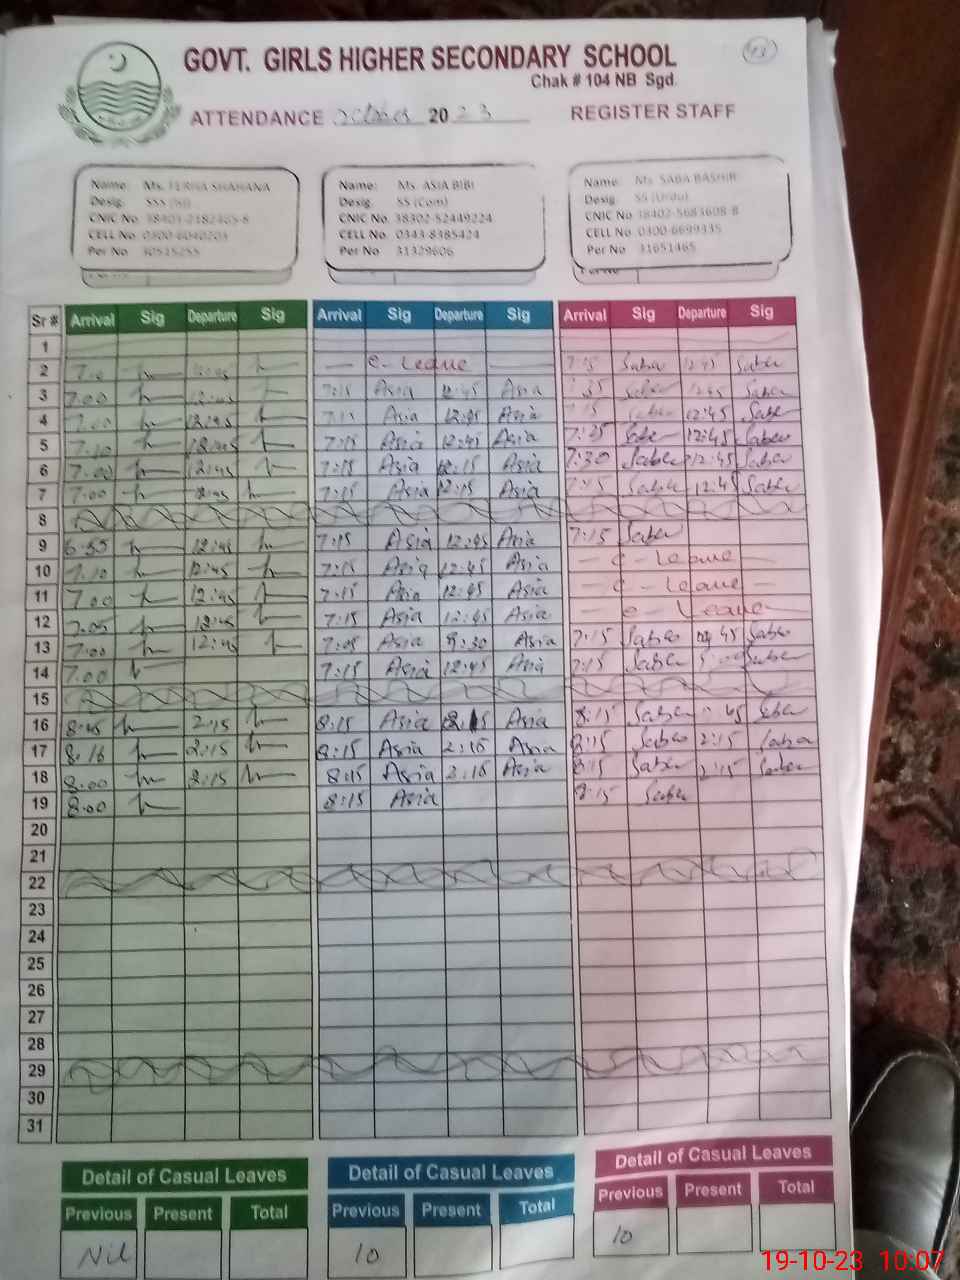 GOVT. GIRLS HIGHER SECONDARY SCHOOL
Chak # 104 NB Sgd.
ATTENDANCE October 2023 REGISTER STAFF
Name: Ms. SHAHANA Name: Ms. ASIA BIBI Name: Ms. SABA BASHIR
Desig. SSS Desig. SS (Com) Desig. SS (Urdu)
CNIC No CNIC No 38302-52449224 CNIC No 38402-5683608-8
CELL No 0300-6040203 CELL No 0343-8385424 CELL No 0300-6699335
Per No 30515255 Per No 31329606 Per No 31651465
Sr # Arrival Sig Departure Sig Arrival Sig Departure Sig Arrival Sig Departure Sig
1
2 7.0 — C- Leave — 7:15 Saba 12:45 Saba
3 7.00 7:15 Asia 12:45 Asia Saba 12:45 Saba
4 7.00 12:45 Asia 12:45 Asia Saba 12:45 Saba
5 7.10 12:45 7:15 Asia 12:45 Asia 7:35 Saba 12:45 Saba
6 7.00 12:45 7:15 Asia 12:15 Asia 7:30 Saba 12:45 Saba
7 7.00 12:45 7:15 Asia 12:15 Asia 7:15 Saba 12:45 Saba
8
9 6.55 12:45 7:15 Asia 12:45 Asia 7:15 Saba
10 7.10 12:45 7:15 Asia 12:45 Asia — C - Leave —
11 7.00 12:45 7:15 Asia 12:45 Asia — C - Leave —
12 7.05 12:45 7:15 Asia 12:45 Asia — C - Leave —
13 7.00 12:45 7:05 Asia 9:30 Asia 7:15 Saba 45 Saba
14 7.00 7:15 Asia 12:45 Asia 7:15 Saba Saba
15
16 8:45 2:15 8:15 Asia Asia 8:15 Saba Saba
17 8.16 2:15 8:15 Asia 2:15 Asia 8:15 Saba 2:15 Saba
18 8.00 2:15 8:15 Asia 2:15 Asia 8:15 Saba 2:15 Saba
19 8.00 8:15 Asia 8:15 Saba
20
21
22
23
24
25
26
27
28
29
30
31
Detail of Casual Leaves Detail of Casual Leaves Detail of Casual Leaves
Previous Present Total Previous Present Total Previous Present Total
Nil 10 10
19-10-23 10:07